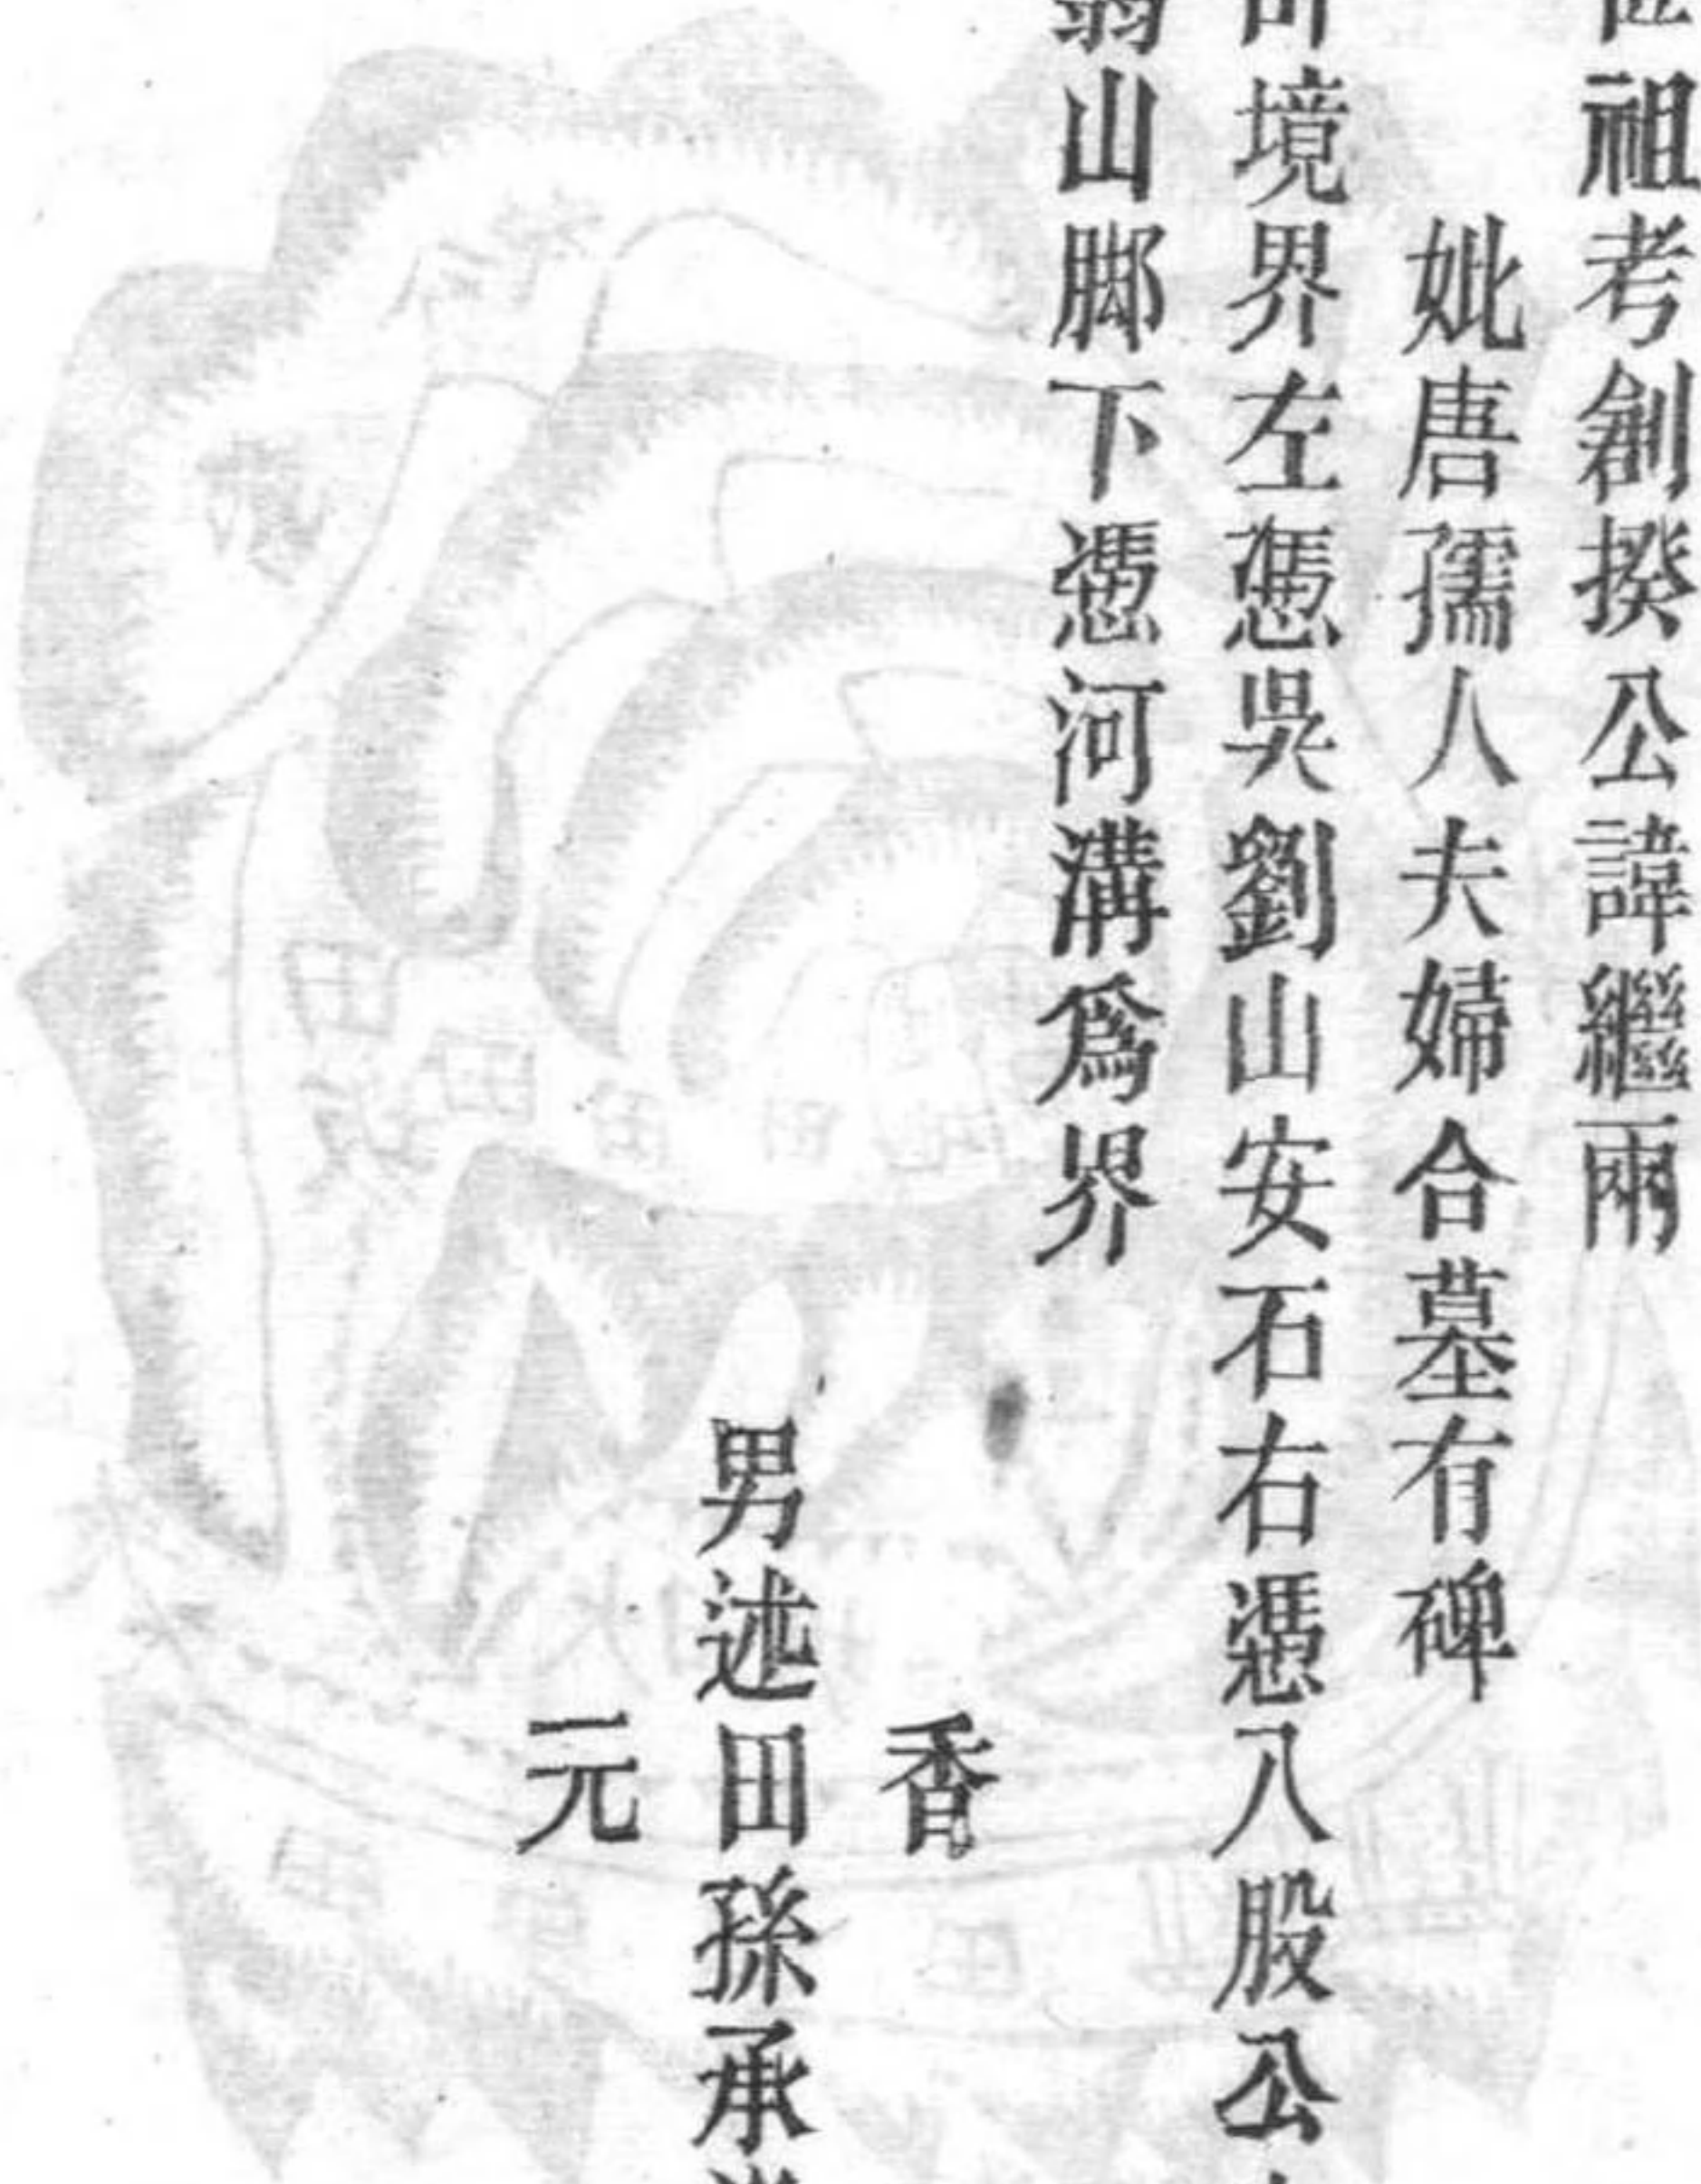 祖考創揆公諱繼兩
妣唐孺人夫婦合墓有碑
境界左慿吳劉山安石右慿八股公
山腳下慿河溝爲界
香
男述田孫承
元